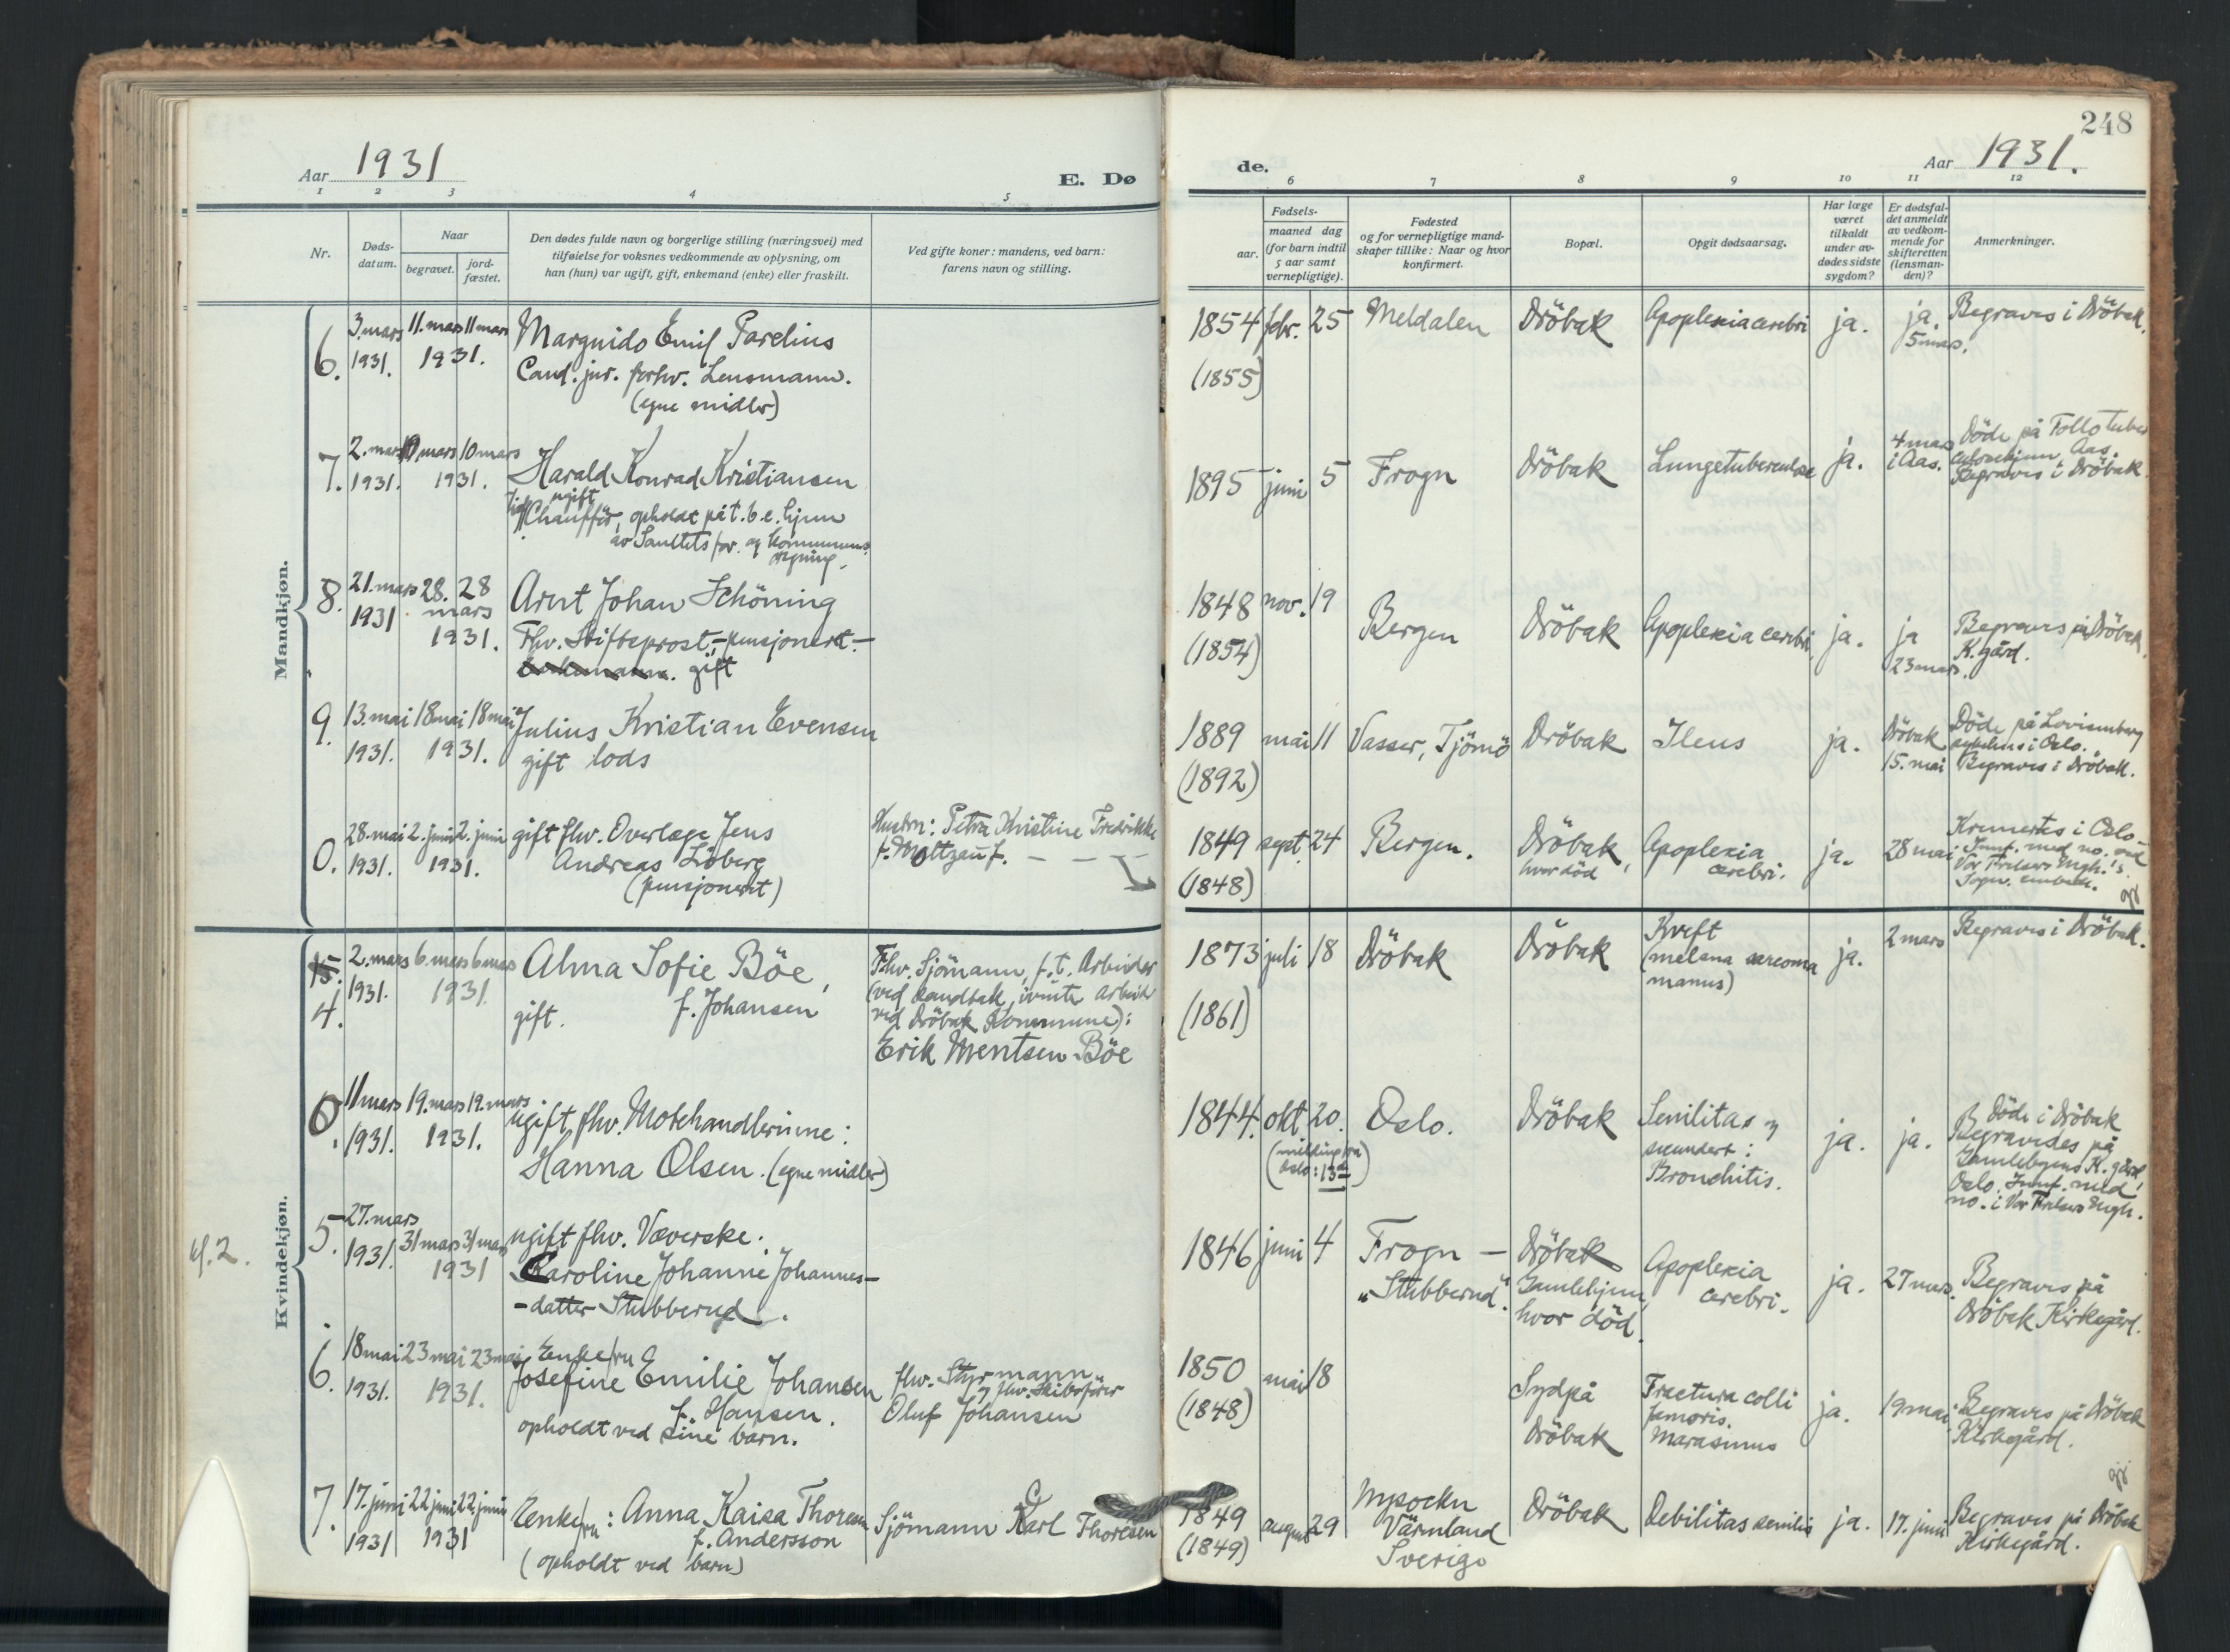 248
Aar 1931
E. Dø
de.
Aar 1931.
1 2 3 4 5
6 7 8 9 10 11 12
Nr.
Døds-
datum.
Naar
begravet.
jord-
fæstet.
Den dødes fulde navn og borgerlige stilling (næringsvei) med
tilføielse for voksnes vedkommende av oplysning, om
han (hun) var ugift, gift, enkemand (enke) eller fraskilt.
Ved gifte koner: mandens, ved barn:
farens navn og stilling.
Fødsels-
aar.
maaned dag
(for barn indtil
5 aar samt
vernepligtige).
Fødested
og for vernepligtige mand-
skaper tillike: Naar og hvor
konfirmert.
Bopæl.
Opgit dødsaarsag.
Har læge
været
tilkaldt
under av-
dødes sidste
sygdom?
Er dødsfal-
det anmeldt
av vedkom-
mende for
skifteretten
(lensman-
den)?
Anmerkninger.
Mandkjøn.
6.
3. mars
1931.
11. mars 11 mars
1931.
Marguido Emil Parelius
Cand. jur. forhv. Lensmann.
(egne midler)
1854 febr. 25
(1855)
Meldalen
Dröbak
Apoplexia cerebri
ja.
ja.
5 mars.
Begraves i Dröbak.
7.
2. mars
1931.
10 mars 10 mars
1931.
Harald Konrad Kristiansen
ugift
Chaufför, opholdt på t.b.c. hjem
av Sanitets for. og kommunens
regning.
1895 juni 5
Frogn
Dröbak
Lungetuberculose
ja.
4 mars
i Aas.
Döde på Follo tuber
culosehjem, Aas.
Begraves i Dröbak
8.
21. mars
1931
28. 28
mars
1931.
Arnt Johan Schöning
Fhv. Stiftsprost, - pensjonert. -
gift
1848 nov. 19
(1854)
Bergen
Dröbak
Apoplexia cerebri
ja.
ja
23 mars.
Begraves på Dröbak.
K. gård.
9.
13. mai
1931.
18 mai 18 mai
1931.
Julius Kristian Evensen
gift lods
1889 mai 11
(1892)
Vasser, Tjömö
Dröbak
Ileus
ja.
Dröbak
15. mai
Döde på Lovisenberg
sykehus i Oslo.
Begraves i Dröbak.
0.
28. mai
1931.
2. juni 2. juni
1931.
gift fhv. Overlæge Jens
Andreas Löberg
(pensjonert)
Hustru: Petra Kristine Fredrikke
f. Moltzau
1849 sept. 24
(1848)
Bergen.
Dröbak,
hvor död
Apoplexia
cerebri.
ja.
28 mai
Kremertes i Oslo.
Innf. med no. ved
Vor Frelsers
Kvindekjøn.
4.
2. mars
1931.
6. mars 6 mars
1931.
Alma Sofie Böe,
gift. f. Johansen
Fhv. Sjömann, f.t. Arbeider
ved Dröbak Kommune):
Erik Mentsen Böe
1873 juli 18
(1861)
Dröbak
Dröbak
Kreft
(melana sarcoma
manus)
ja.
2 mars
Begraves i Dröbak.
6.
11 mars
1931.
19. mars 19. mars
1931.
ugift fhv. Motehandlerinne:
Hanna Olsen. (egne midler)
1844. okt 20.
(melding fra
Oslo: 13)
Oslo.
Dröbak
Senilitas og
secundert:
Bronchitis.
ja.
ja.
Döde i Dröbak
Begravedes på
Gamlebyens K. gård,
Oslo. Innf. med
no. i Vor Frelsers
cf. 2.
5.
27. mars
1931.
31 mars 31 mars
1931
ugift fhv. Væverske.
Caroline Johanne Johannes-
-datter Stubberud.
1846 juni 4
Frogn -
"Stubberud".
Dröbak
Gamlehjem,
hvor död.
Apoplexia
cerebri.
ja.
27 mars.
Begraves på
Dröbak Kirkegård.
6.
18 mai
1931.
23 mai 23 mai
1931.
Enkefru
Josefine Emilie Johansen
f. Hansen.
opholdt ved sine barn.
fhv. Styrmann
og fhv. Skibsförer
Oluf Johansen
1850 mai 18
(1848)
Sydpå
Dröbak
Fractura colli
femoris.
Marasmus
ja.
19 mai
Begraves på Dröbak
Kirkegård.
7.
17. juni
1931
22 juni 22 juni
1931
Enkefru: Anna Kaisa Thoresen
f. Andersson
(opholdt ved barn)
Sjömann Carl Thoresen
1849 august 29
(1849)
Värmland
Sverige
Dröbak
Debilitas senilis
ja.
17. juni
Begraves på Dröbak
Kirkegård.